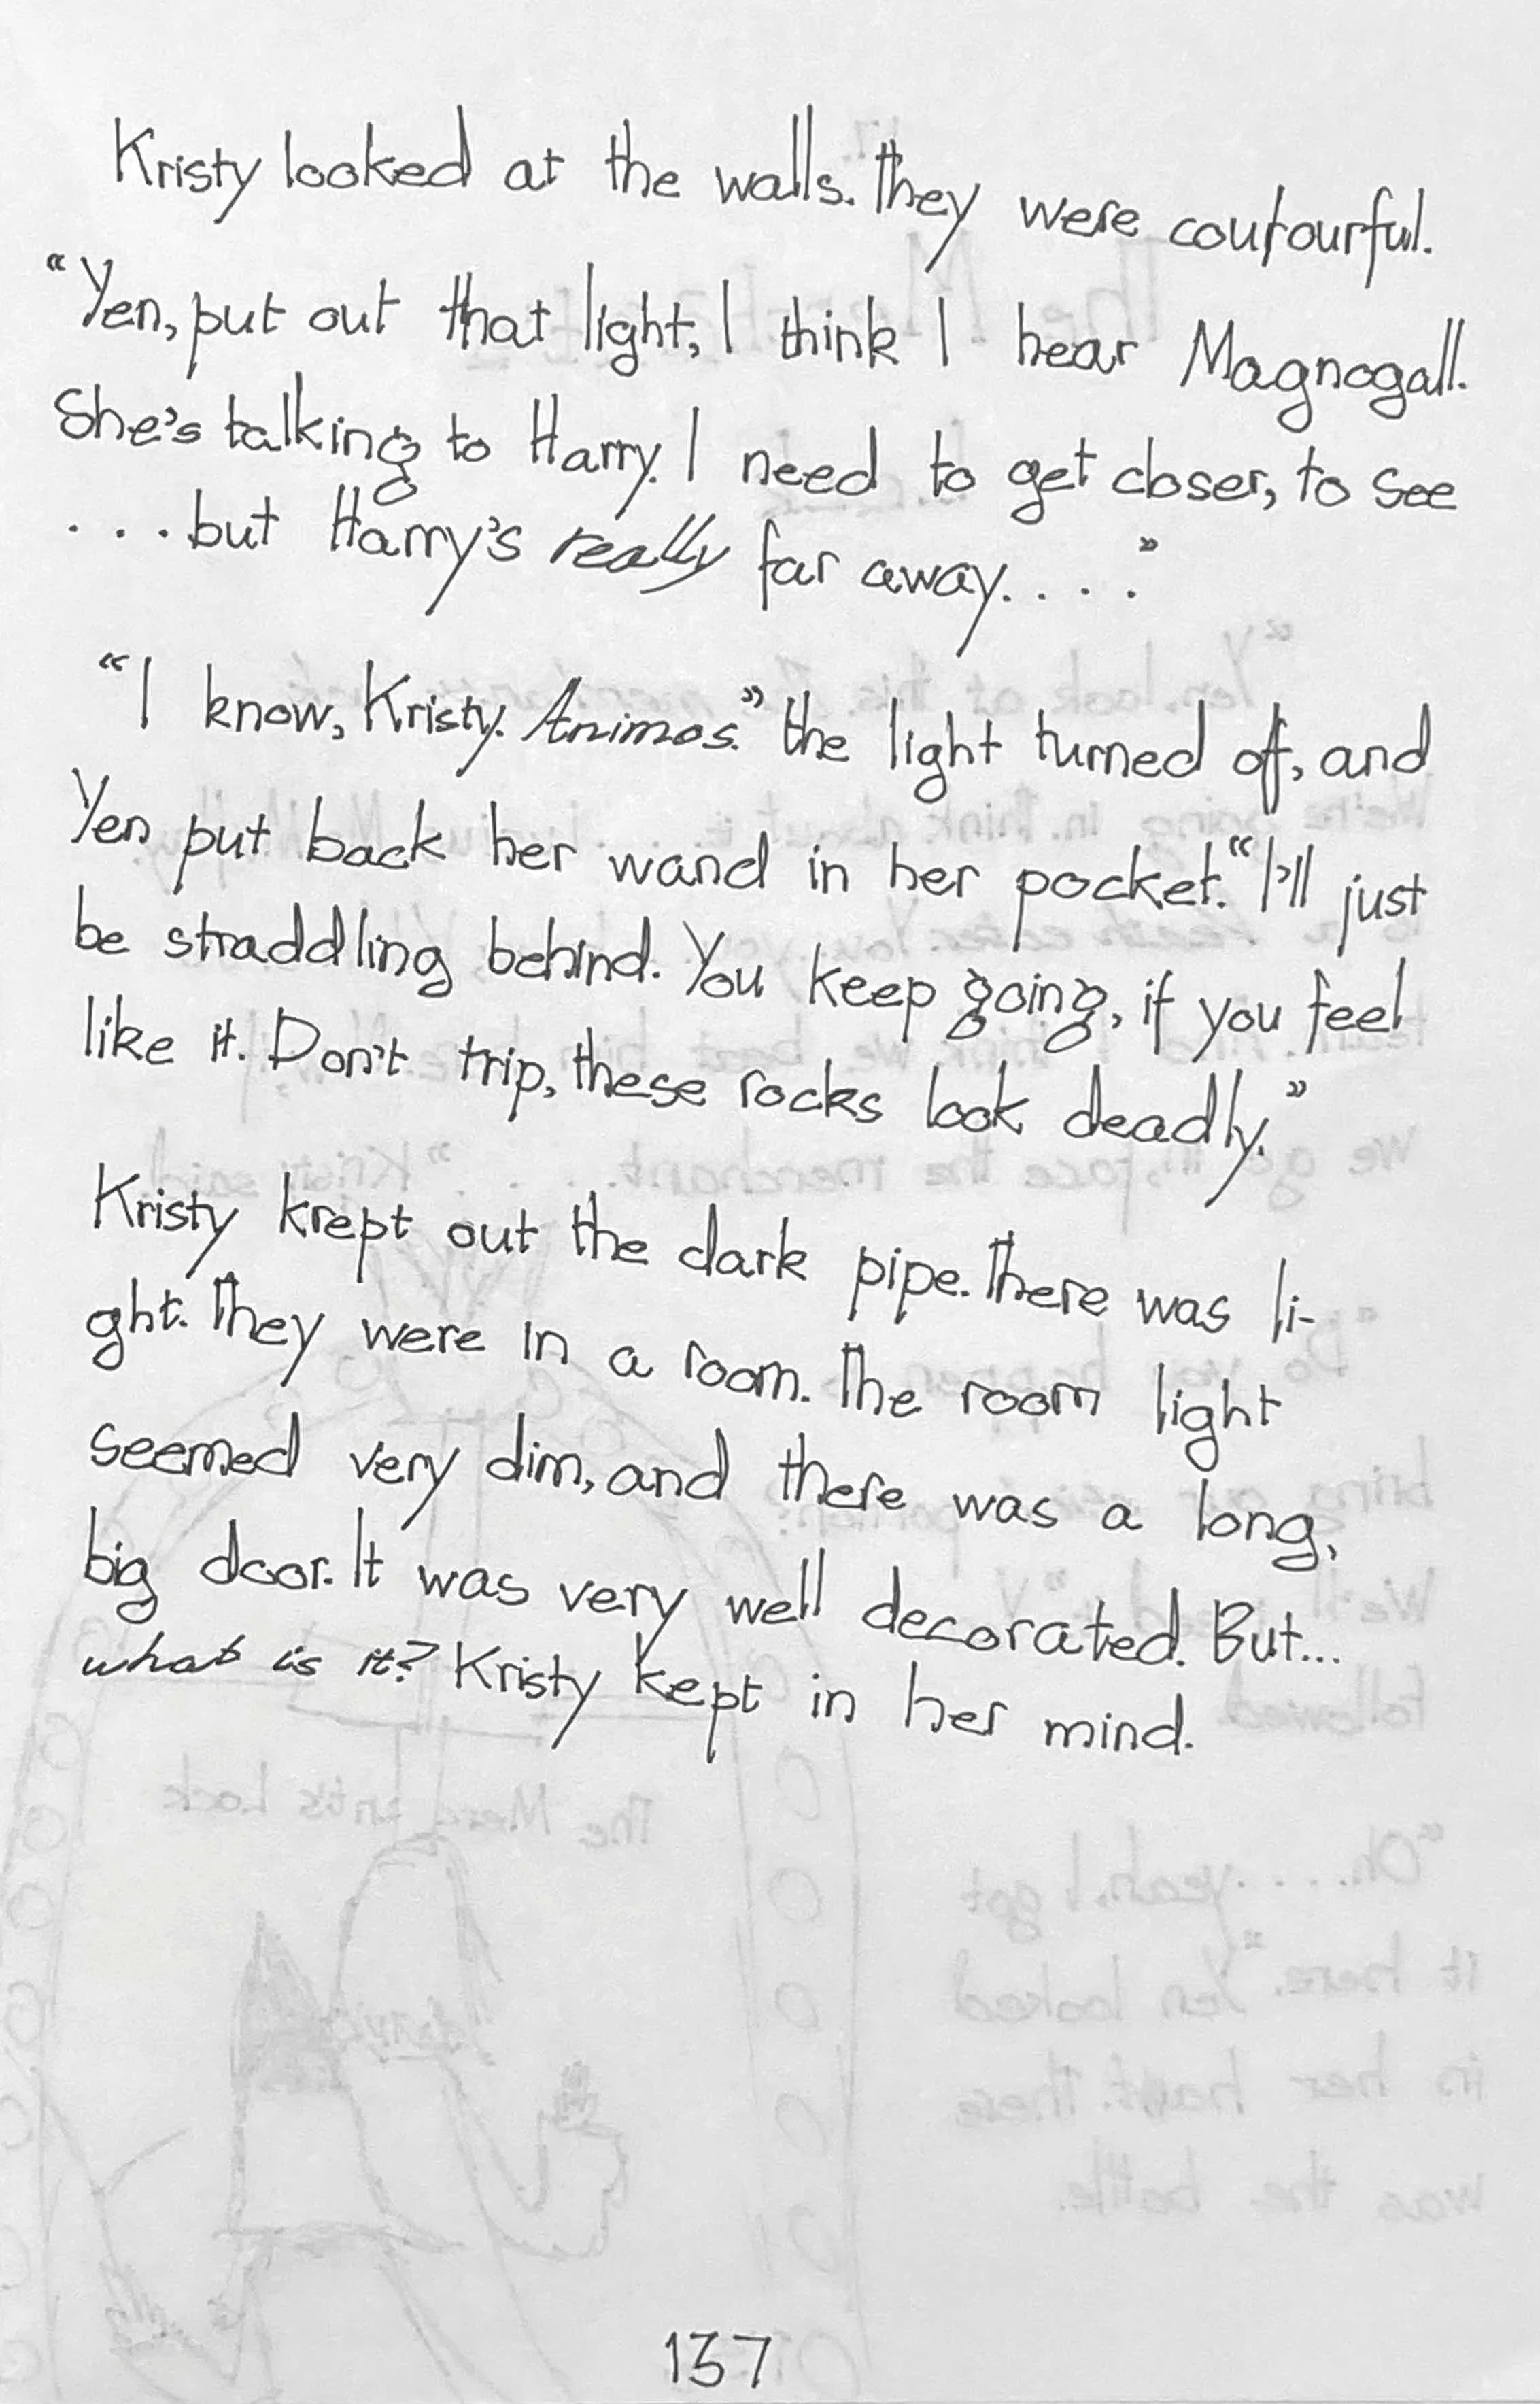 Kristy looked at the walls. They were coutourful.
“Yen, put out that light, I think I hear Magnogall.
She's talking to Harry. I need to get closer, to see
. . . but Harry's really far away. . . .”
“I know, Kristy. Animos.” the light turned of, and
Yen put back her wand in her pocket. “I'll just
be straddling behind. You keep going, if you feel
like it. Don't trip, these rocks look deadly.”
Kristy krept out the dark pipe. There was li-
ght. They were in a room. The room light
seemed very dim, and there was a long,
big door. It was very well decorated. But...
what is it? Kristy kept in her mind.
137